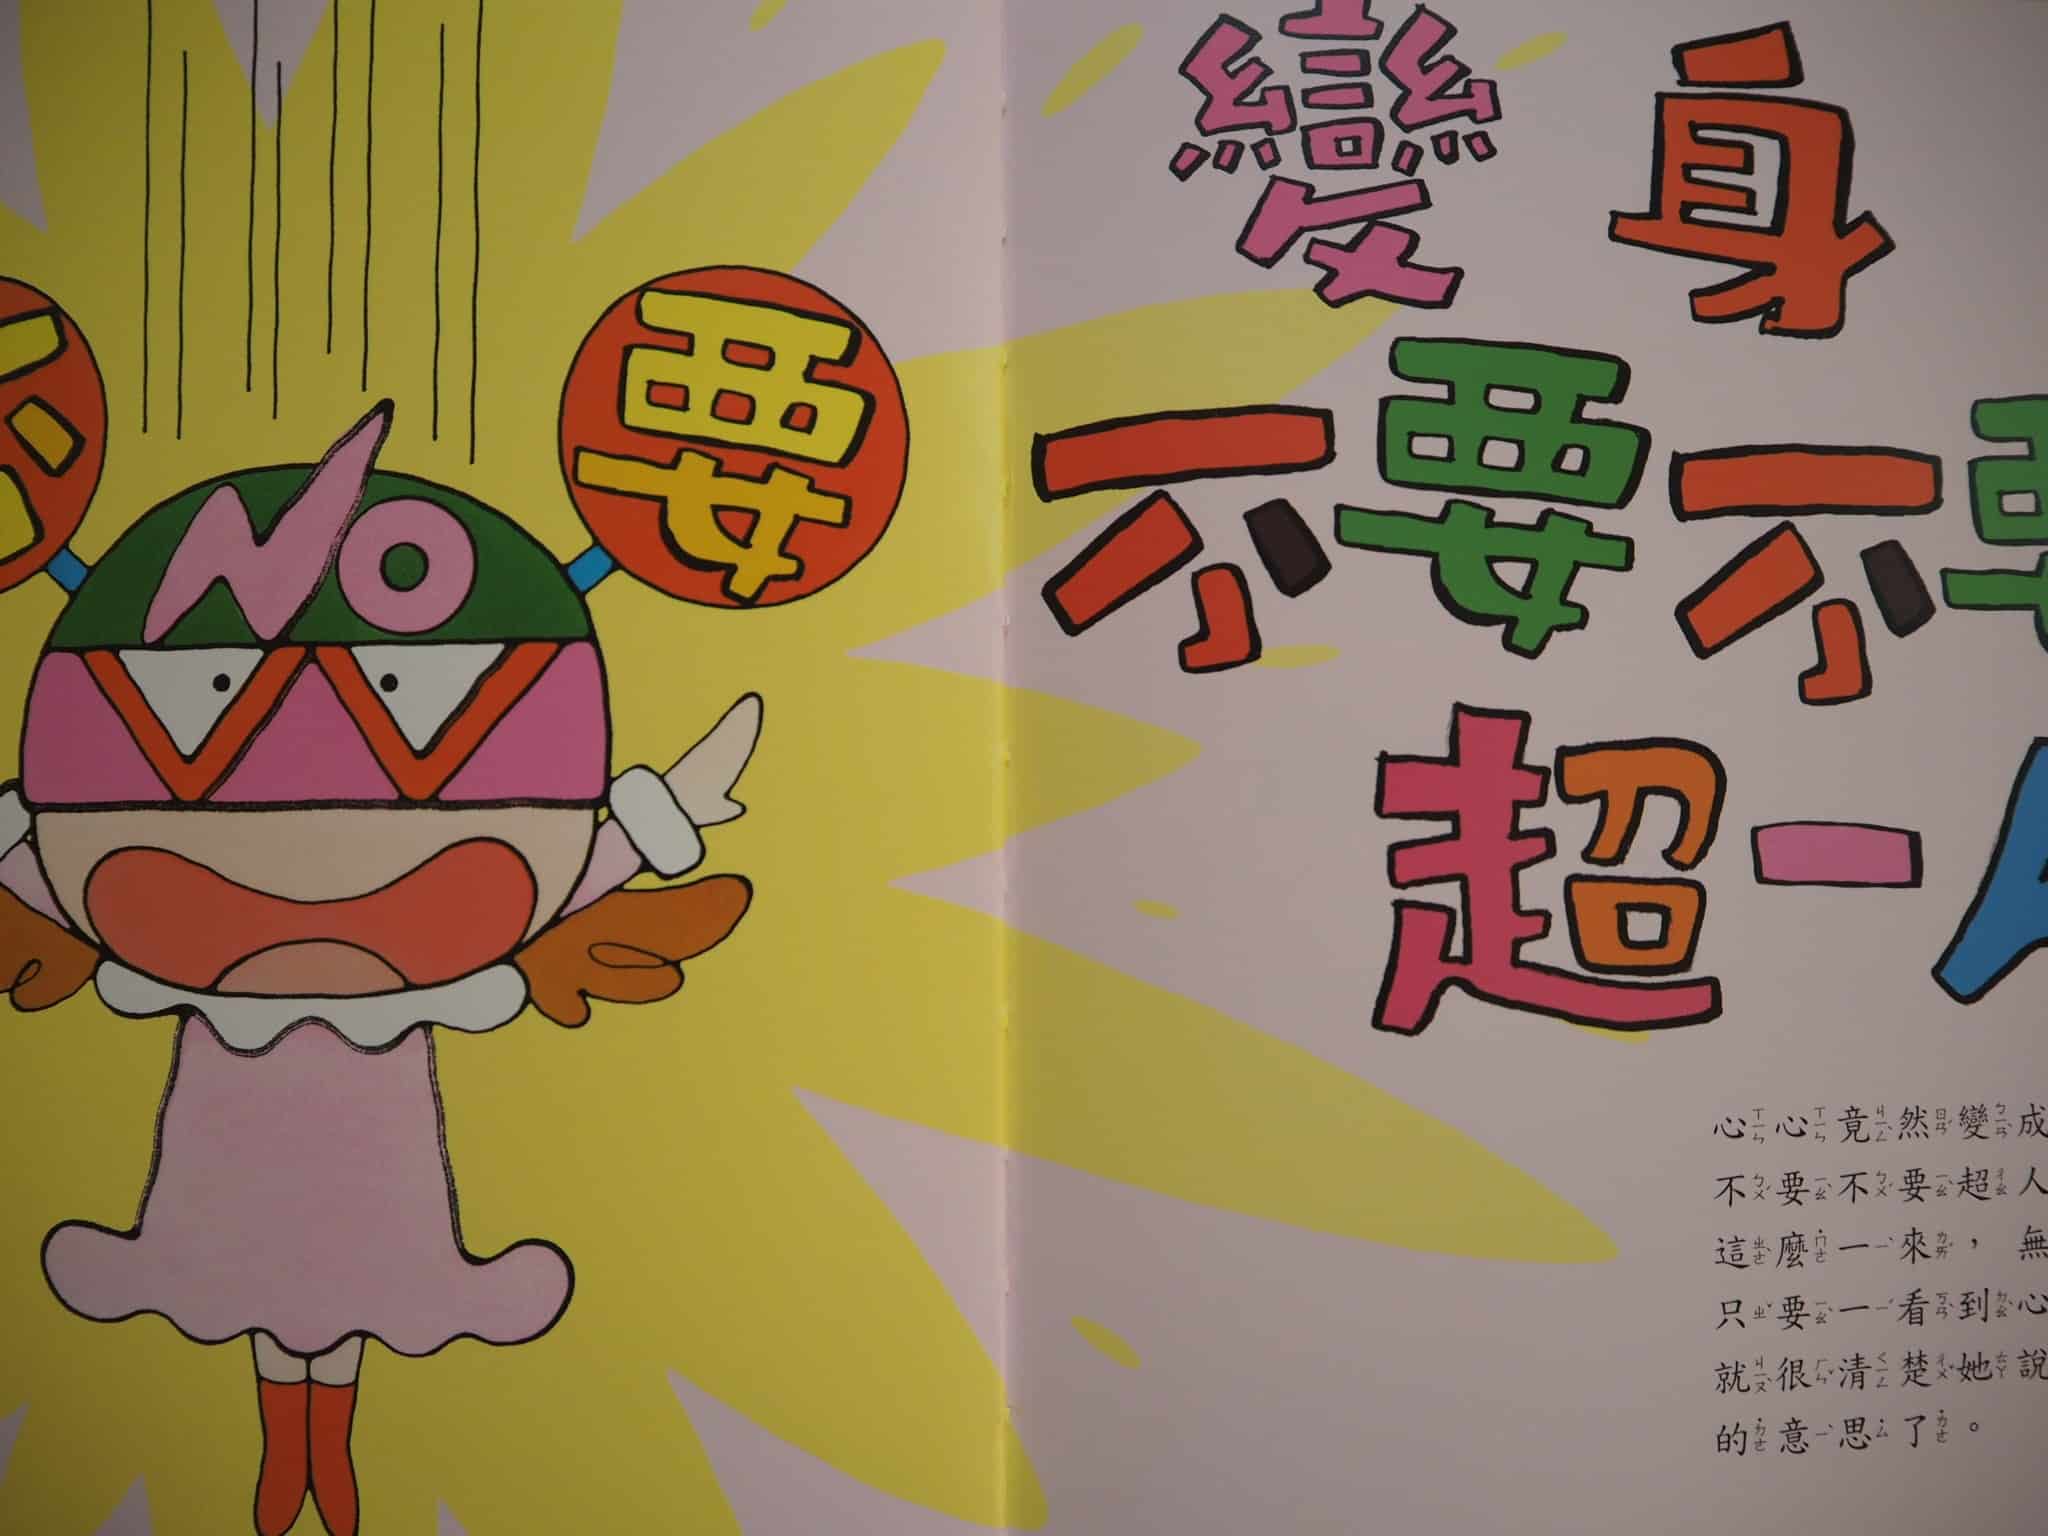 要
NO
變身
不要不要
超一人
心心竟然變成
不要不要超人
這麼一來，無
只要一看到心
就很清楚她說
的意思了。